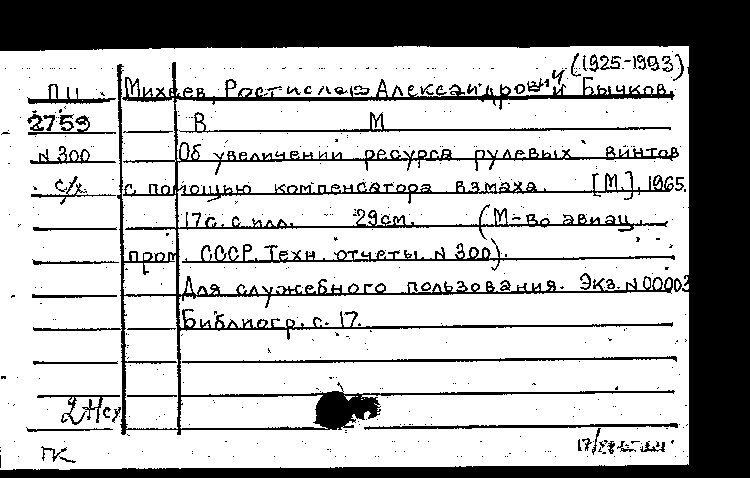 (1925-1993)
ПЦ Михеев, Ростислав Александрович и Бычков,
2759 В М
N 300 Об увеличении ресурса рулевых винтов
с/х с помощью компенсатора взмаха. [М.], 1965.
17с. с илл. 29см. (М-во авиац.
пром. СССР. Техн. отчеты. N 300).
Для служебного пользования. Экз. N 00003
Библиогр. с. 17.
ГК